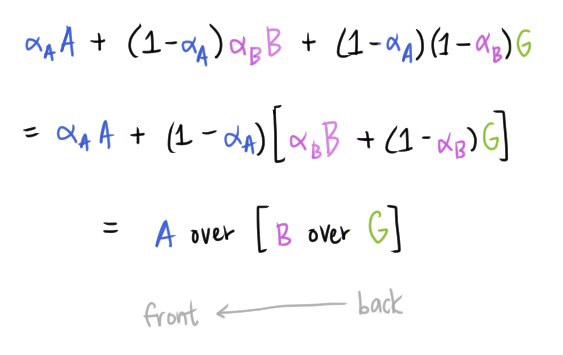 α_A A + (1-α_A) α_B B + (1-α_A)(1-α_B) G
= α_A A + (1-α_A) [α_B B + (1-α_B) G]
= A over [B over G]
front ← back